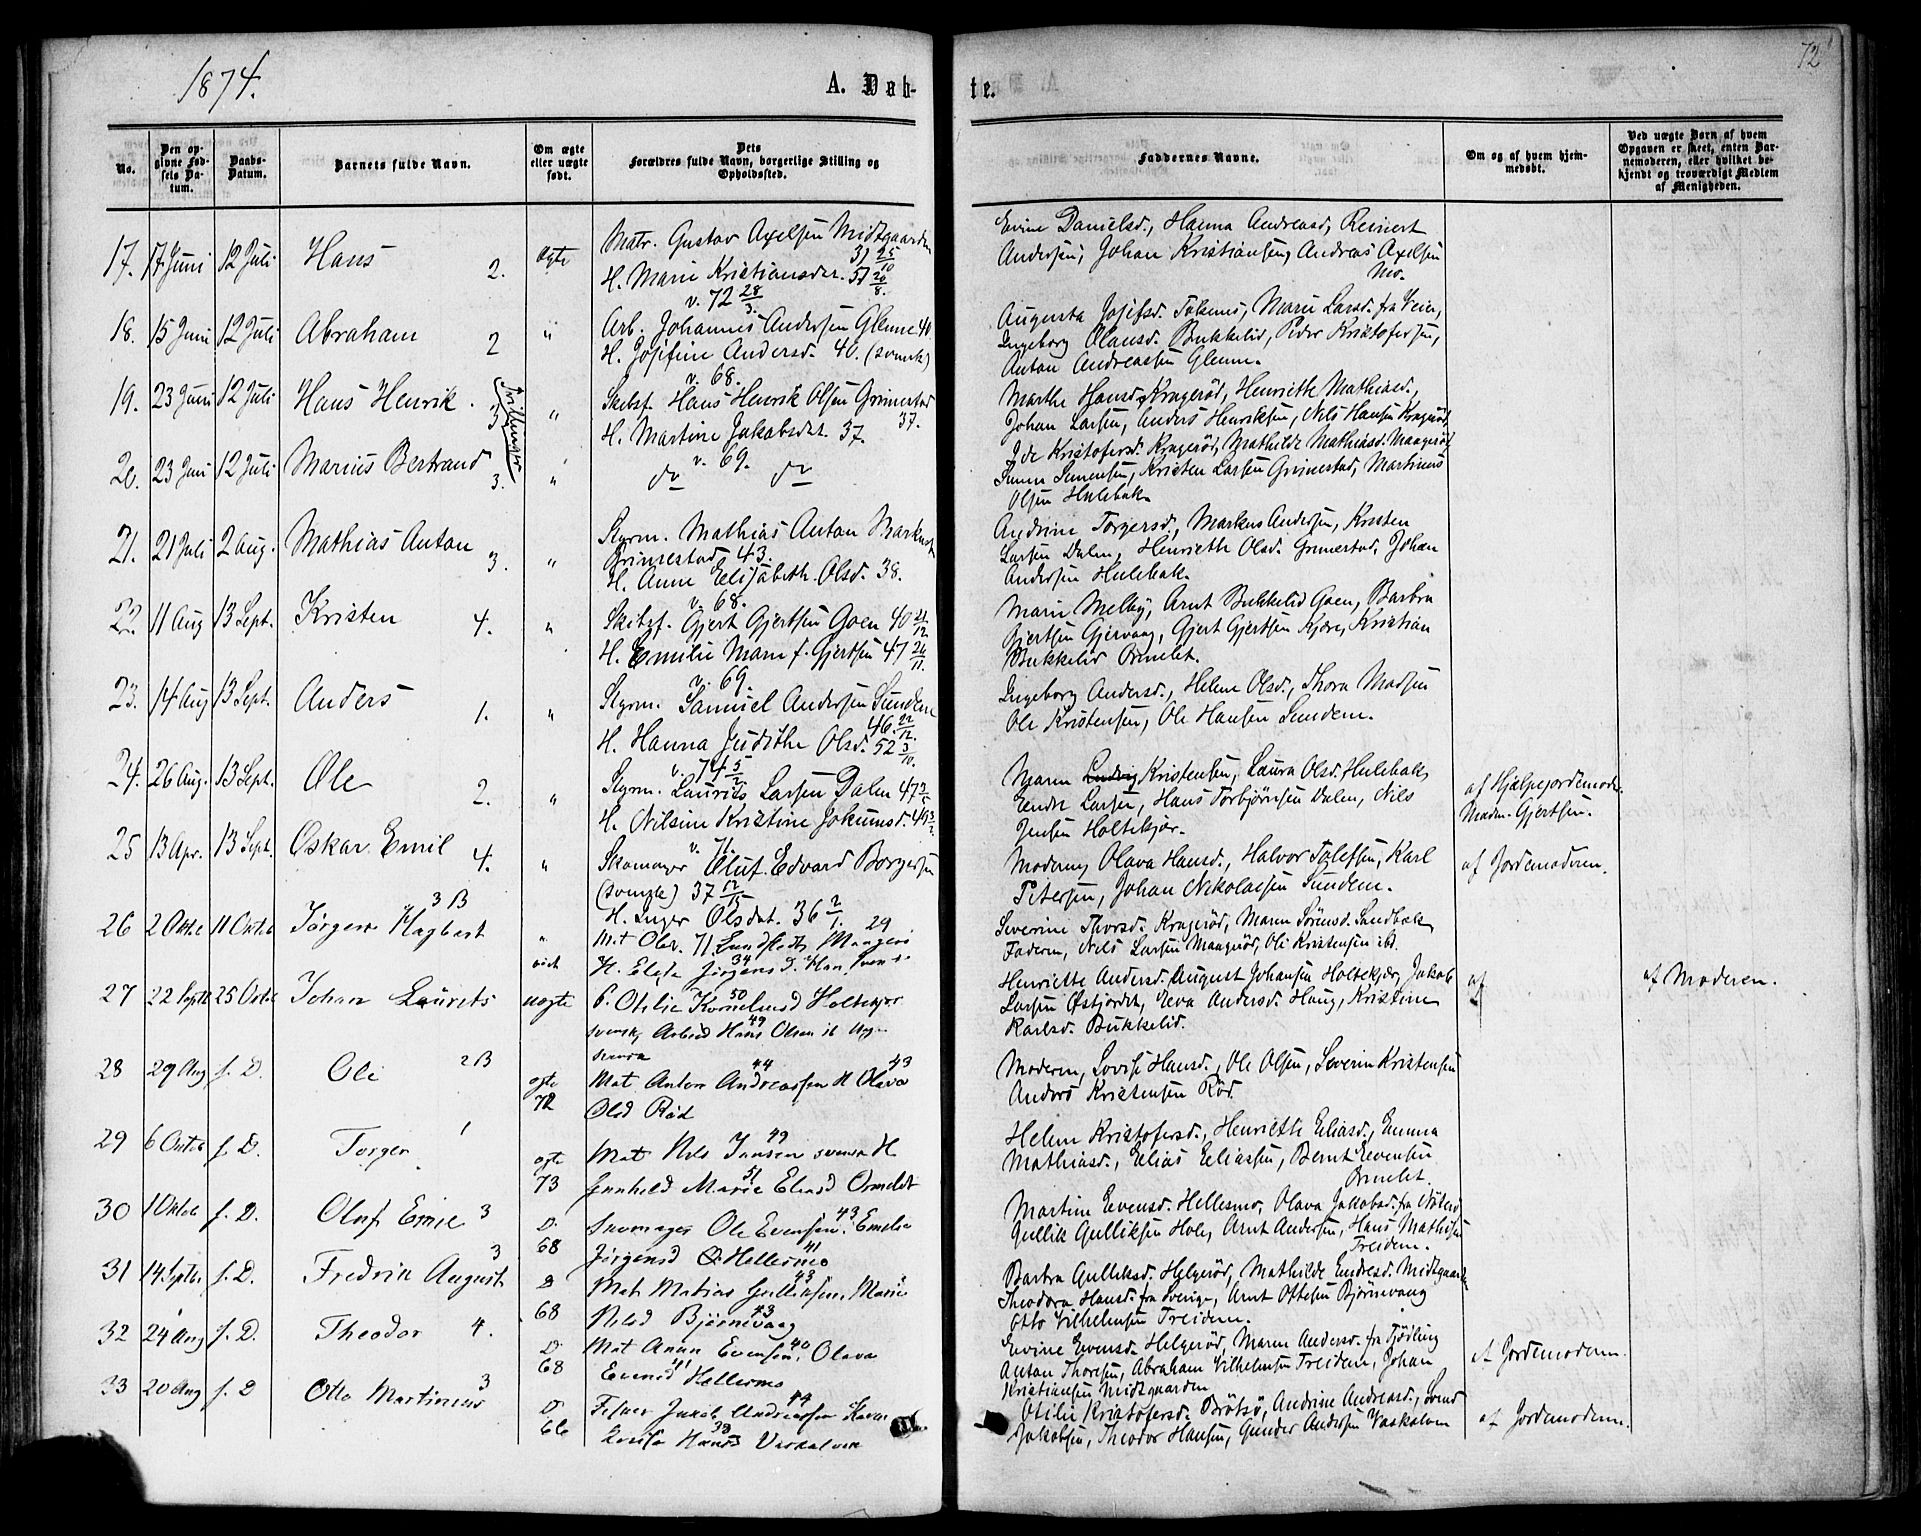 1874.
A. Døb-
te.
72
No.
Den op-
givne Fød-
sels Da-
tum.
Daabs-
Datum.
Barnets fulde Navn.
Om ægte
eller uægte
født.
Dets
Forældres fulde Navn, borgerlige Stilling og
Opholdsted.
Faddernes Navne.
Om og af hvem hjem-
medøbt.
Ved uægte Børn af hvem
Opgaven er skeet, enten Bar-
nemoderen, eller hvilket be-
kjendt og troværdigt Medlem
af Menigheden.
17. 17 Juni 12 Juli Hans 2. ægte
Matr. Gustav Axelsen Midtgaarden
31 25/10
H. Marie Kristiansdr. 51 20/8.
v. 72 28/3.
Evine Danielsd., Hanna Andreasd, Reinert
Andersen, Johan Kristiansen, Andreas Axelsen
18. 15 Juni 12 Juli Abraham 2 "
Arb. Johannes Andersen Glenne 40
H. Josefine Andersd. 40. (svensk)
v. 68.
Augusta Josefsd. Marie Larsd. fra
Ingeborg Olausd. Bukkelid, Peder Kristofersen,
Anton Andreassen Glenne.
19. 23 Juni 12 Juli Hans Henrik. 3 Tvillinger "
Skibsf. Hans Henrik Olsen Grimestad
37.
H. Martine Jakobsdat. 37.
v. 69.
Marthe Hansd. Kragerød, Henriette Mathiasd.,
Johan Larsen, Anders Henriksen, Nils Hansen Kragerød
20. 23 Juni 12 Juli Marius Bertrand 3. "
do do
Ide Kristofersd. Kragerød, Mathilde Mathiasd. Maagerød
Simensen, Kristen Larsen Grimestad, Martinus
Olsen Hulebak.
21. 21 Juli 2 Aug. Mathias Anton 3. "
Styrm. Mathias Anton
Grimestad 43.
H. Anne Elisabeth Olsd. 38.
v. 68.
Andrine Torgersd., Markus Andersen, Kristen
Larsen Dalen, Henriette Olsd. Grimestad, Johan
Andersen Hulebak.
22. 11 Aug 13 Sept. Kristen 4. "
Skibsf. Gjert Gjertsen Goen 40 22/12
H. Emilie Marie f. Gjertsen 47 26/11.
v. 69.
Marie Melby, Arnt Bukkelid Goen, Barbra
Gjertsen Gjervaag, Gjert Gjertsen Kjære, Kristian
Bukkelid Ormelet.
23. 14 Aug 13 Sept. Anders 1. "
Styrm. Samuel Andersen Sundene
46. 22/12.
H. Hanna Judithe Olsd. 52 3/10.
v. 74 5/2
Ingeborg Andersd., Helene Olsd., Thora Madsen
Ole Kristensen, Ole Hansen Sundene.
24. 26 Aug. 13 Sept. Ole 2. "
Styrm. Laurits Larsen Dalen 47
H. Nilsine Kristine Jokumsd. 49
v. 71.
Maren Ludvig Kristensen, Laura Olsd. Hulebak
Endre Larsen, Hans Torbjørnsen Dalen, Nils
Jensen Holtekjær.
af Hjælpejordemoder
Madm. Gjertsen.
25 13 Apr. 13 Sept. Oskar Emil 4. "
Skomager Oluf Edvard Borgersen
37 12/15
H. Inger Olsdat. 36 2/1.
Moderen, Olava Hansd., Halvor Tolefsen, Karl
Petersen, Johan Nikolaisen Sundene.
af Jordemoderen.
26 2 Oktbr 11 Oktob Jørgen Hagbart 3 B "
29
34
Severine Thorsd. Kragerød, Maren Sørensd. Sandbak
Faderen, Nils Larsen Maagerød, Ole Kristensen ibd.
27 22 Septb 25 Octob Johan Laurits uægte
P. Otilie Kornelusd Holtekjær 50
svensk, Arbeid Hans Olsen 49
Henriette Andersd. August Johansen Holtekjær, Jakob
Larsen Østjordet, Eva Andersd. Haug, Kristine
Karlsd. Bukkelid.
af
af Moderen.
28 29 Aug f. D. Ole 2 B ægte 72
Mat Anton Andreassen 44 H Olava 43
Olsd Rød
Moderen, Lovise Hansd., Ole Olsen, Severin Kristensen
Anders Kristensen Rød.
29 6 Octob f. D. Torger 1 ægte 73
Mat Nils Jansen 49 svensk H
Gunhild Marie 51 Eliasd Ormelet
Helene Kristofersd., Henriette Eliasd., Emma
Mathiasd., Elias Eliassen, Bernt Evensen
Ormelet.
30 1 Oktob f. D. Oluf Emil 3 D. 68
Skomager Ole Evensen 43 Emilie
Jørgensd 41 Hellesmo
Martine Evensd. Hellesmo, Olava Jakobsd. fra Nøterø
Gullik Gulliksen Hole, Arnt Andersen, Hans Mathisen
Treidene.
31 14 Septbr f. D. Fredrik August 3 D 68
Mat Matias Gulliksen 43 Marie
Nilsd Bjørnevaag 43
Barbra Gulliksd. Helgerød, Mathilde Endresd. Midtgaarden
Theodora Hansd. fra Sverige, Arnt Ottesen Bjørnevaag
Otto Vilhelmsen Treidene.
32 24 Aug f. D. Theodor 4. D. 68
Mat Anun Evensen 40, Olava
Evensd 41 Hellesmo
Evine Evensd. Helgerød, Maren Andersd. fra Tjødling
Anton Thoresen, Abraham Vilhelmsen Treidene, Johan
Kristiansen Midtgaarden
af Jordemoderen.
33 20 Aug f. D Otto Martinius 3 D 66
Fisker Jakob Andreassen 44 Karen
Lovise Hansd 39 Vaskalven
Otilie Kristofersd. Brøtsø, Andrine Andreasd., Svend
Jakobsen, Theodor Hansen, Gunder Andersen Vaskalven
af Jordemoderen.